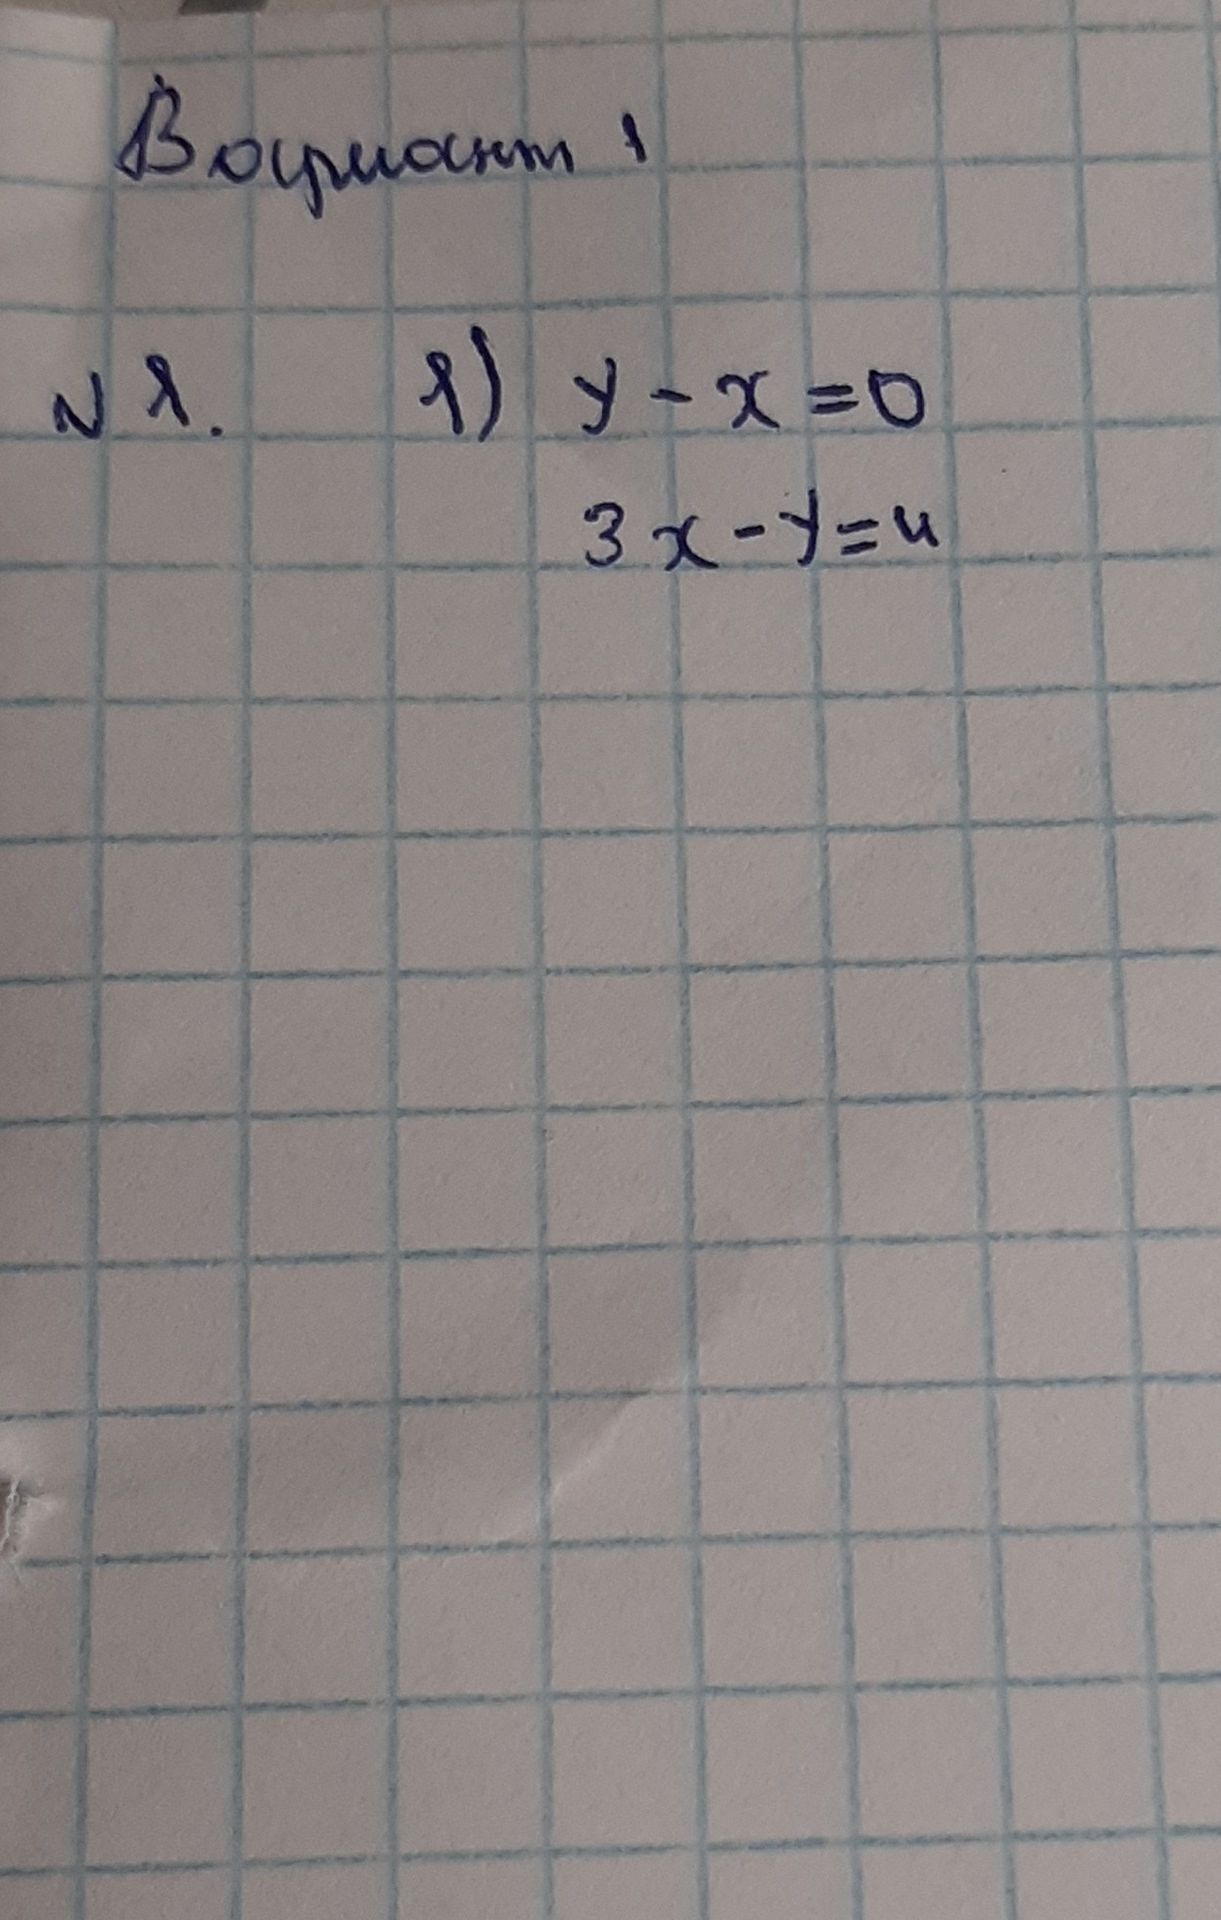 Вариант 1
№ 1. 1) y - x = 0
3x - y = 4